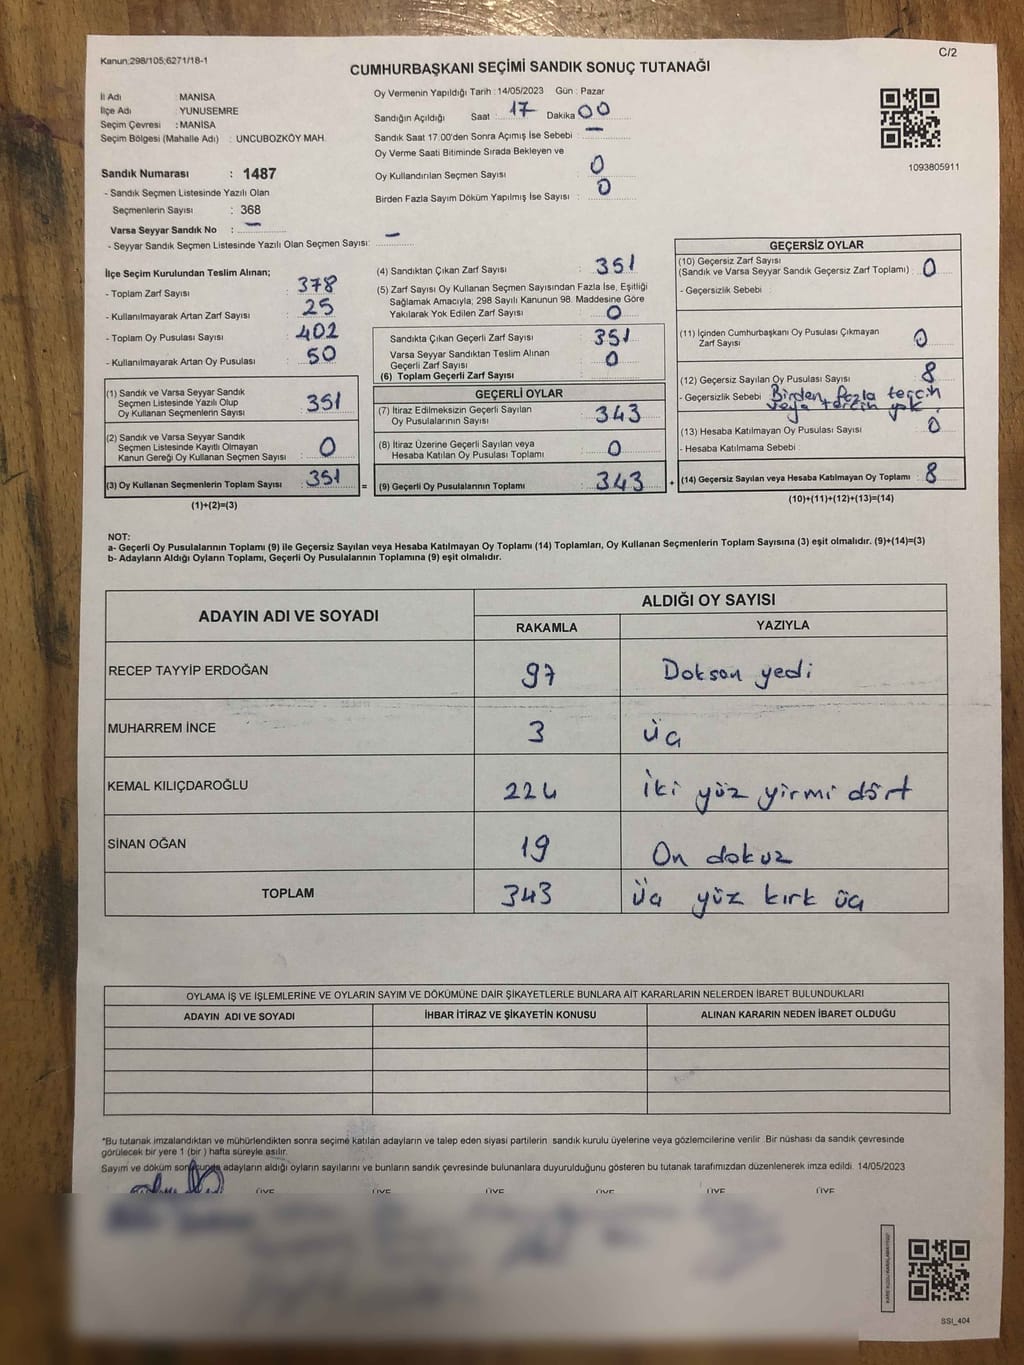 Kanun:298/105;6271/18-1
C/2
CUMHURBAŞKANI SEÇİMİ SANDIK SONUÇ TUTANAĞI
İl Adı : MANİSA
İlçe Adı : YUNUSEMRE
Seçim Çevresi : MANİSA
Seçim Bölgesi (Mahalle Adı) : UNCUBOZKÖY MAH.
Oy Vermenin Yapıldığı Tarih : 14/05/2023 Gün : Pazar
Sandığın Açıldığı Saat : 17 Dakika : 00
Sandık Saat 17:00'den Sonra Açımış İse Sebebi : —
Oy Verme Saati Bitiminde Sırada Bekleyen ve
Oy Kullandırılan Seçmen Sayısı : 0
Birden Fazla Sayım Döküm Yapılmış İse Sayısı : 0
1093805911
Sandık Numarası : 1487
- Sandık Seçmen Listesinde Yazılı Olan
Seçmenlerin Sayısı : 368
Varsa Seyyar Sandık No : —
- Seyyar Sandık Seçmen Listesinde Yazılı Olan Seçmen Sayısı: —
İlçe Seçim Kurulundan Teslim Alınan;
- Toplam Zarf Sayısı : 378
- Kullanılmayarak Artan Zarf Sayısı : 25
- Toplam Oy Pusulası Sayısı : 402
- Kullanılmayarak Artan Oy Pusulası : 50
(1) Sandık ve Varsa Seyyar Sandık
Seçmen Listesinde Yazılı Olup
Oy Kullanan Seçmenlerin Sayısı : 351
(2) Sandık ve Varsa Seyyar Sandık
Seçmen Listesinde Kayıtlı Olmayan
Kanun Gereği Oy Kullanan Seçmen Sayısı : 0
(3) Oy Kullanan Seçmenlerin Toplam Sayısı : 351
(1)+(2)=(3)
(4) Sandıktan Çıkan Zarf Sayısı : 351
(5) Zarf Sayısı Oy Kullanan Seçmen Sayısından Fazla İse, Eşitliği
Sağlamak Amacıyla; 298 Sayılı Kanunun 98. Maddesine Göre
Yakılarak Yok Edilen Zarf Sayısı : 0
Sandıkta Çıkan Geçerli Zarf Sayısı : 351
Varsa Seyyar Sandıktan Teslim Alınan
Geçerli Zarf Sayısı : 0
(6) Toplam Geçerli Zarf Sayısı :
GEÇERLİ OYLAR
(7) İtiraz Edilmeksizin Geçerli Sayılan
Oy Pusulalarının Sayısı : 343
(8) İtiraz Üzerine Geçerli Sayılan veya
Hesaba Katılan Oy Pusulası Toplamı : 0
= (9) Geçerli Oy Pusulalarının Toplamı : 343
GEÇERSİZ OYLAR
(10) Geçersiz Zarf Sayısı
(Sandık ve Varsa Seyyar Sandık Geçersiz Zarf Toplamı) : 0
- Geçersizlik Sebebi :
(11) İçinden Cumhurbaşkanı Oy Pusulası Çıkmayan
Zarf Sayısı : 0
(12) Geçersiz Sayılan Oy Pusulası Sayısı : 8
- Geçersizlik Sebebi : Birden fazla tercih
veya tercih yok
(13) Hesaba Katılmayan Oy Pusulası Sayısı : 0
- Hesaba Katılmama Sebebi :
+ (14) Geçersiz Sayılan veya Hesaba Katılmayan Oy Toplamı : 8
(10)+(11)+(12)+(13)=(14)
NOT:
a- Geçerli Oy Pusulalarının Toplamı (9) ile Geçersiz Sayılan veya Hesaba Katılmayan Oy Toplamı (14) Toplamları, Oy Kullanan Seçmenlerin Toplam Sayısına (3) eşit olmalıdır. (9)+(14)=(3)
b- Adayların Aldığı Oyların Toplamı, Geçerli Oy Pusulalarının Toplamına (9) eşit olmalıdır.
ADAYIN ADI VE SOYADI
ALDIĞI OY SAYISI
RAKAMLA YAZIYLA
RECEP TAYYİP ERDOĞAN 97 Doksan yedi
MUHARREM İNCE 3 üç
KEMAL KILIÇDAROĞLU 224 İki yüz yirmi dört
SİNAN OĞAN 19 On dokuz
TOPLAM 343 Üç yüz kırk üç
OYLAMA İŞ VE İŞLEMLERİNE VE OYLARIN SAYIM VE DÖKÜMÜNE DAİR ŞİKAYETLERLE BUNLARA AİT KARARLARIN NELERDEN İBARET BULUNDUKLARI
ADAYIN ADI VE SOYADI İHBAR İTİRAZ VE ŞİKAYETİN KONUSU ALINAN KARARIN NEDEN İBARET OLDUĞU
*Bu tutanak imzalandıktan ve mühürlendikten sonra seçime katılan adayların ve talep eden siyasi partilerin sandık kurulu üyelerine veya gözlemcilerine verilir. Bir nüshası da sandık çevresinde
görülecek bir yere 1 (bir ) hafta süreyle asılır.
Sayım ve döküm sonucunda adayların aldığı oyların sayılarını ve bunların sandık çevresinde bulunanlara duyurulduğunu gösteren bu tutanak tarafımızdan düzenlenerek imza edildi. 14/05/2023
ÜYE ÜYE ÜYE ÜYE ÜYE ÜYE
SSİ_404